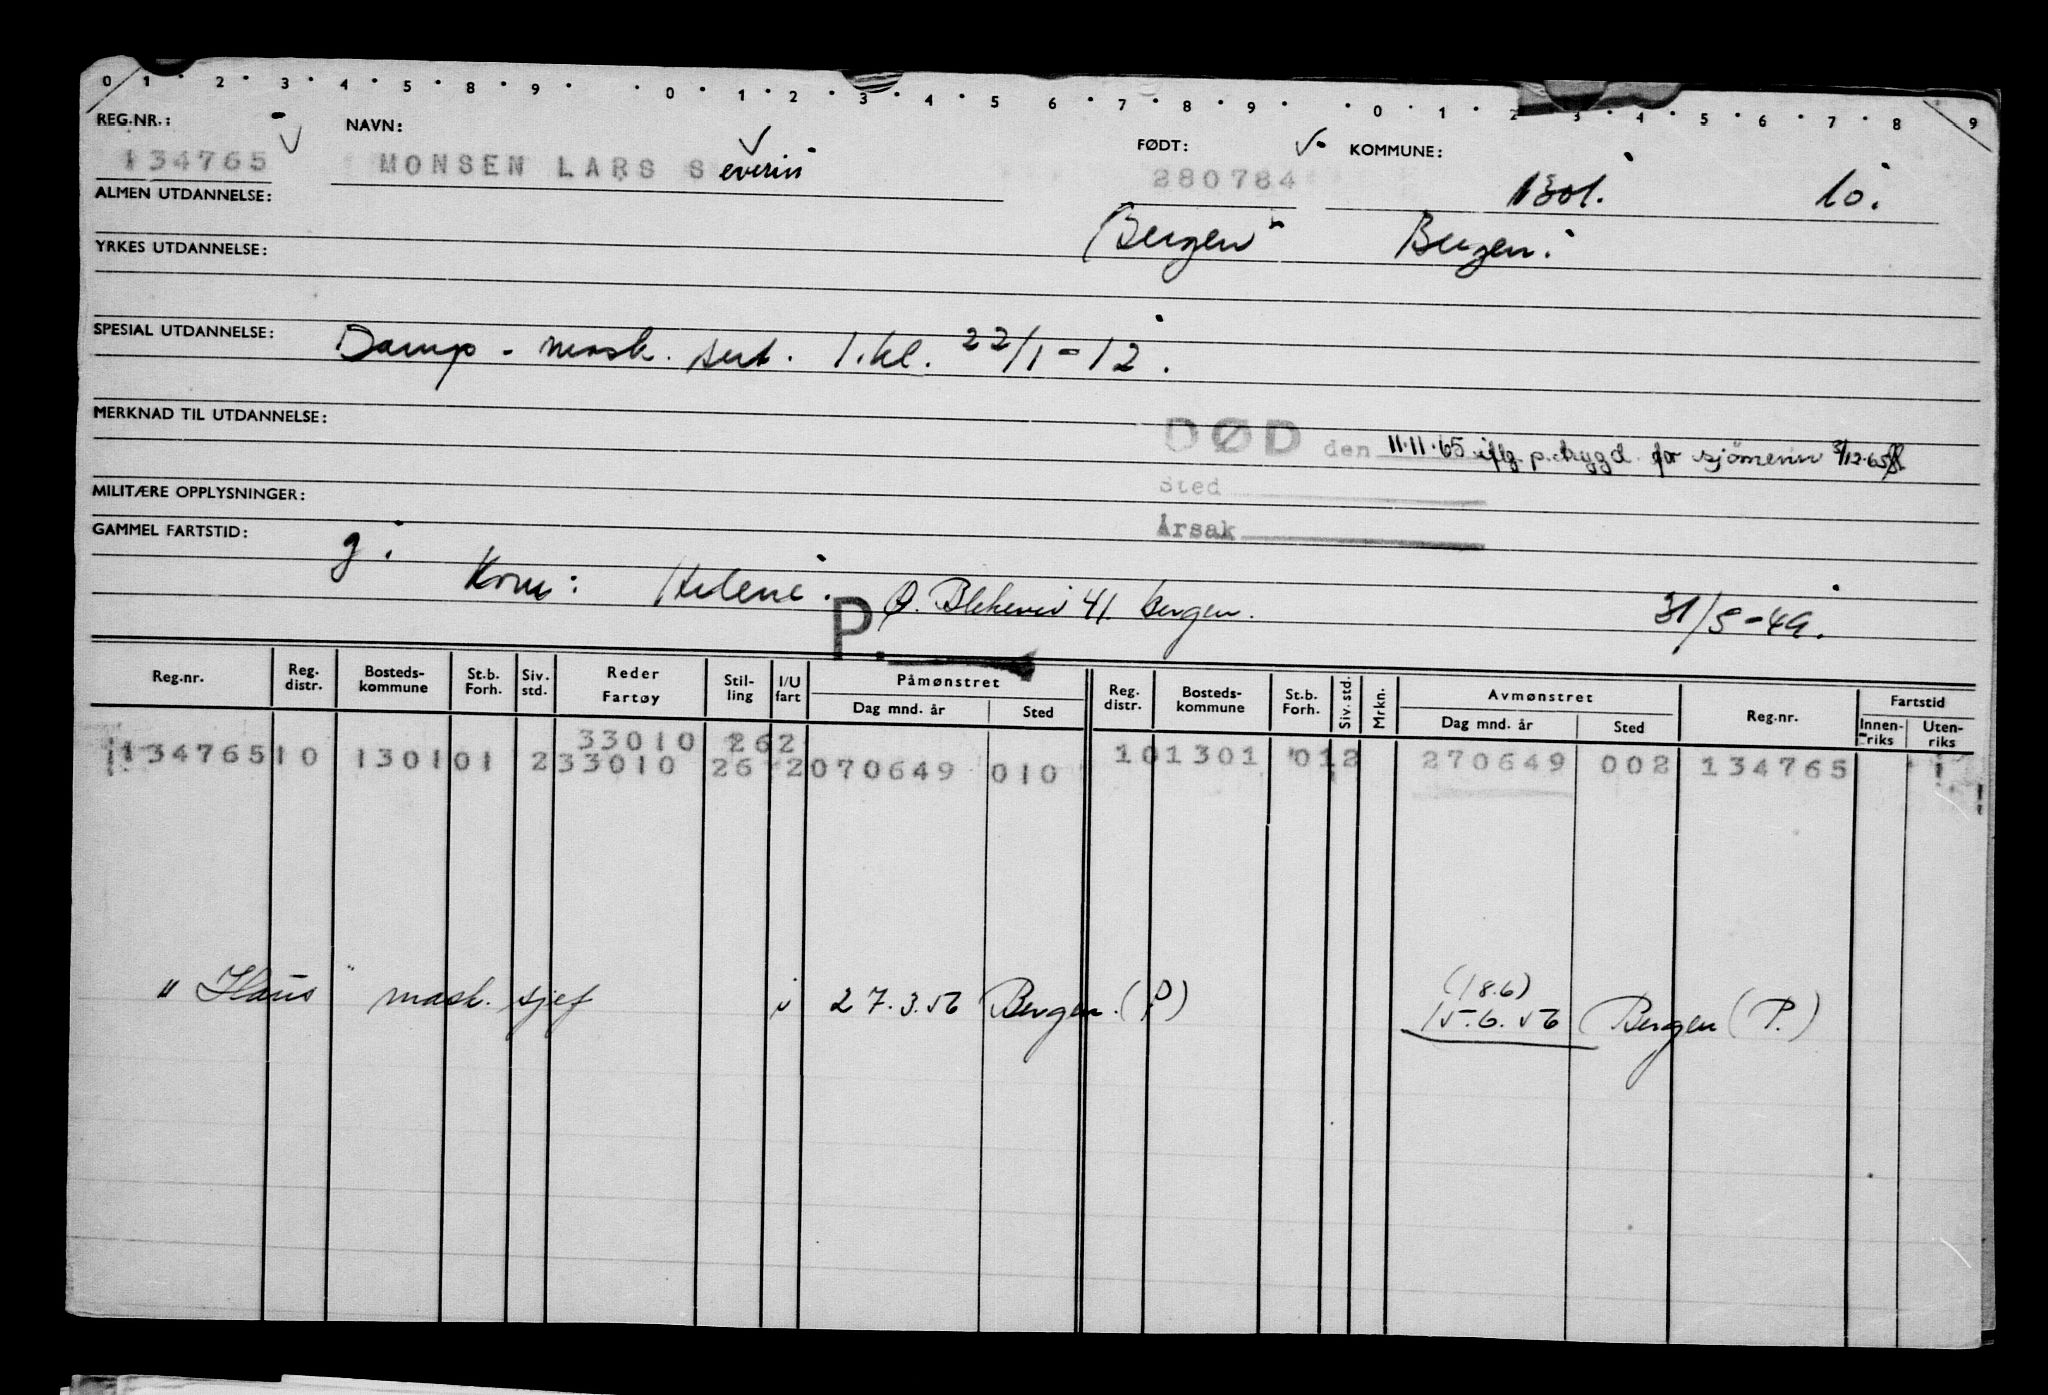 0 1 · 2 · 3 · 4 · 5 · 8 · 9 · · 0 · 1 · 2 · 3 · 4 · 5 6 · 7 · 8 · 9 · · 0 · 1 · 2 · 3 · 4 · 5 · 6 · 7 · 8 9
REG.NR.: NAVN: FØDT: KOMMUNE:
134765 MONSEN LARS Severin 280784 1301. 10.
ALMEN UTDANNELSE:
Bergen Bergen.
YRKES UTDANNELSE:
SPESIAL UTDANNELSE: Damp - mask. sert. 1.kl. 22/1-12.
MERKNAD TIL UTDANNELSE:
DØD den 11.11.65 iflg. p.trygd for sjömenn 3/12.65
MILITÆRE OPPLYSNINGER: Sted
GAMMEL FARTSTID: g. Årsak
Kone: Helene. Ø. Blekevei 41. Bergen. 31/5-49.
P.
Reg.nr. Reg. distr. Bosteds-kommune St.b. Forh. Siv. std. Reder Fartøy Stil-ling I/U fart Påmønstret Dag mnd. år Sted Reg. distr. Bosteds-kommune St.b. Forh. Siv. std. Mrkn. Avmønstret Dag mnd. år Sted Reg.nr. Fartstid Innen-riks Uten-riks
33010 262
134765 10 1301 01 2 33010 26 2 070649 010 10 1301 01 2 270649 002 134765 1
(18.6)
"Haus" mask. sjef i 27.3.56 Bergen. (P) 15.6.56 Bergen (P.)